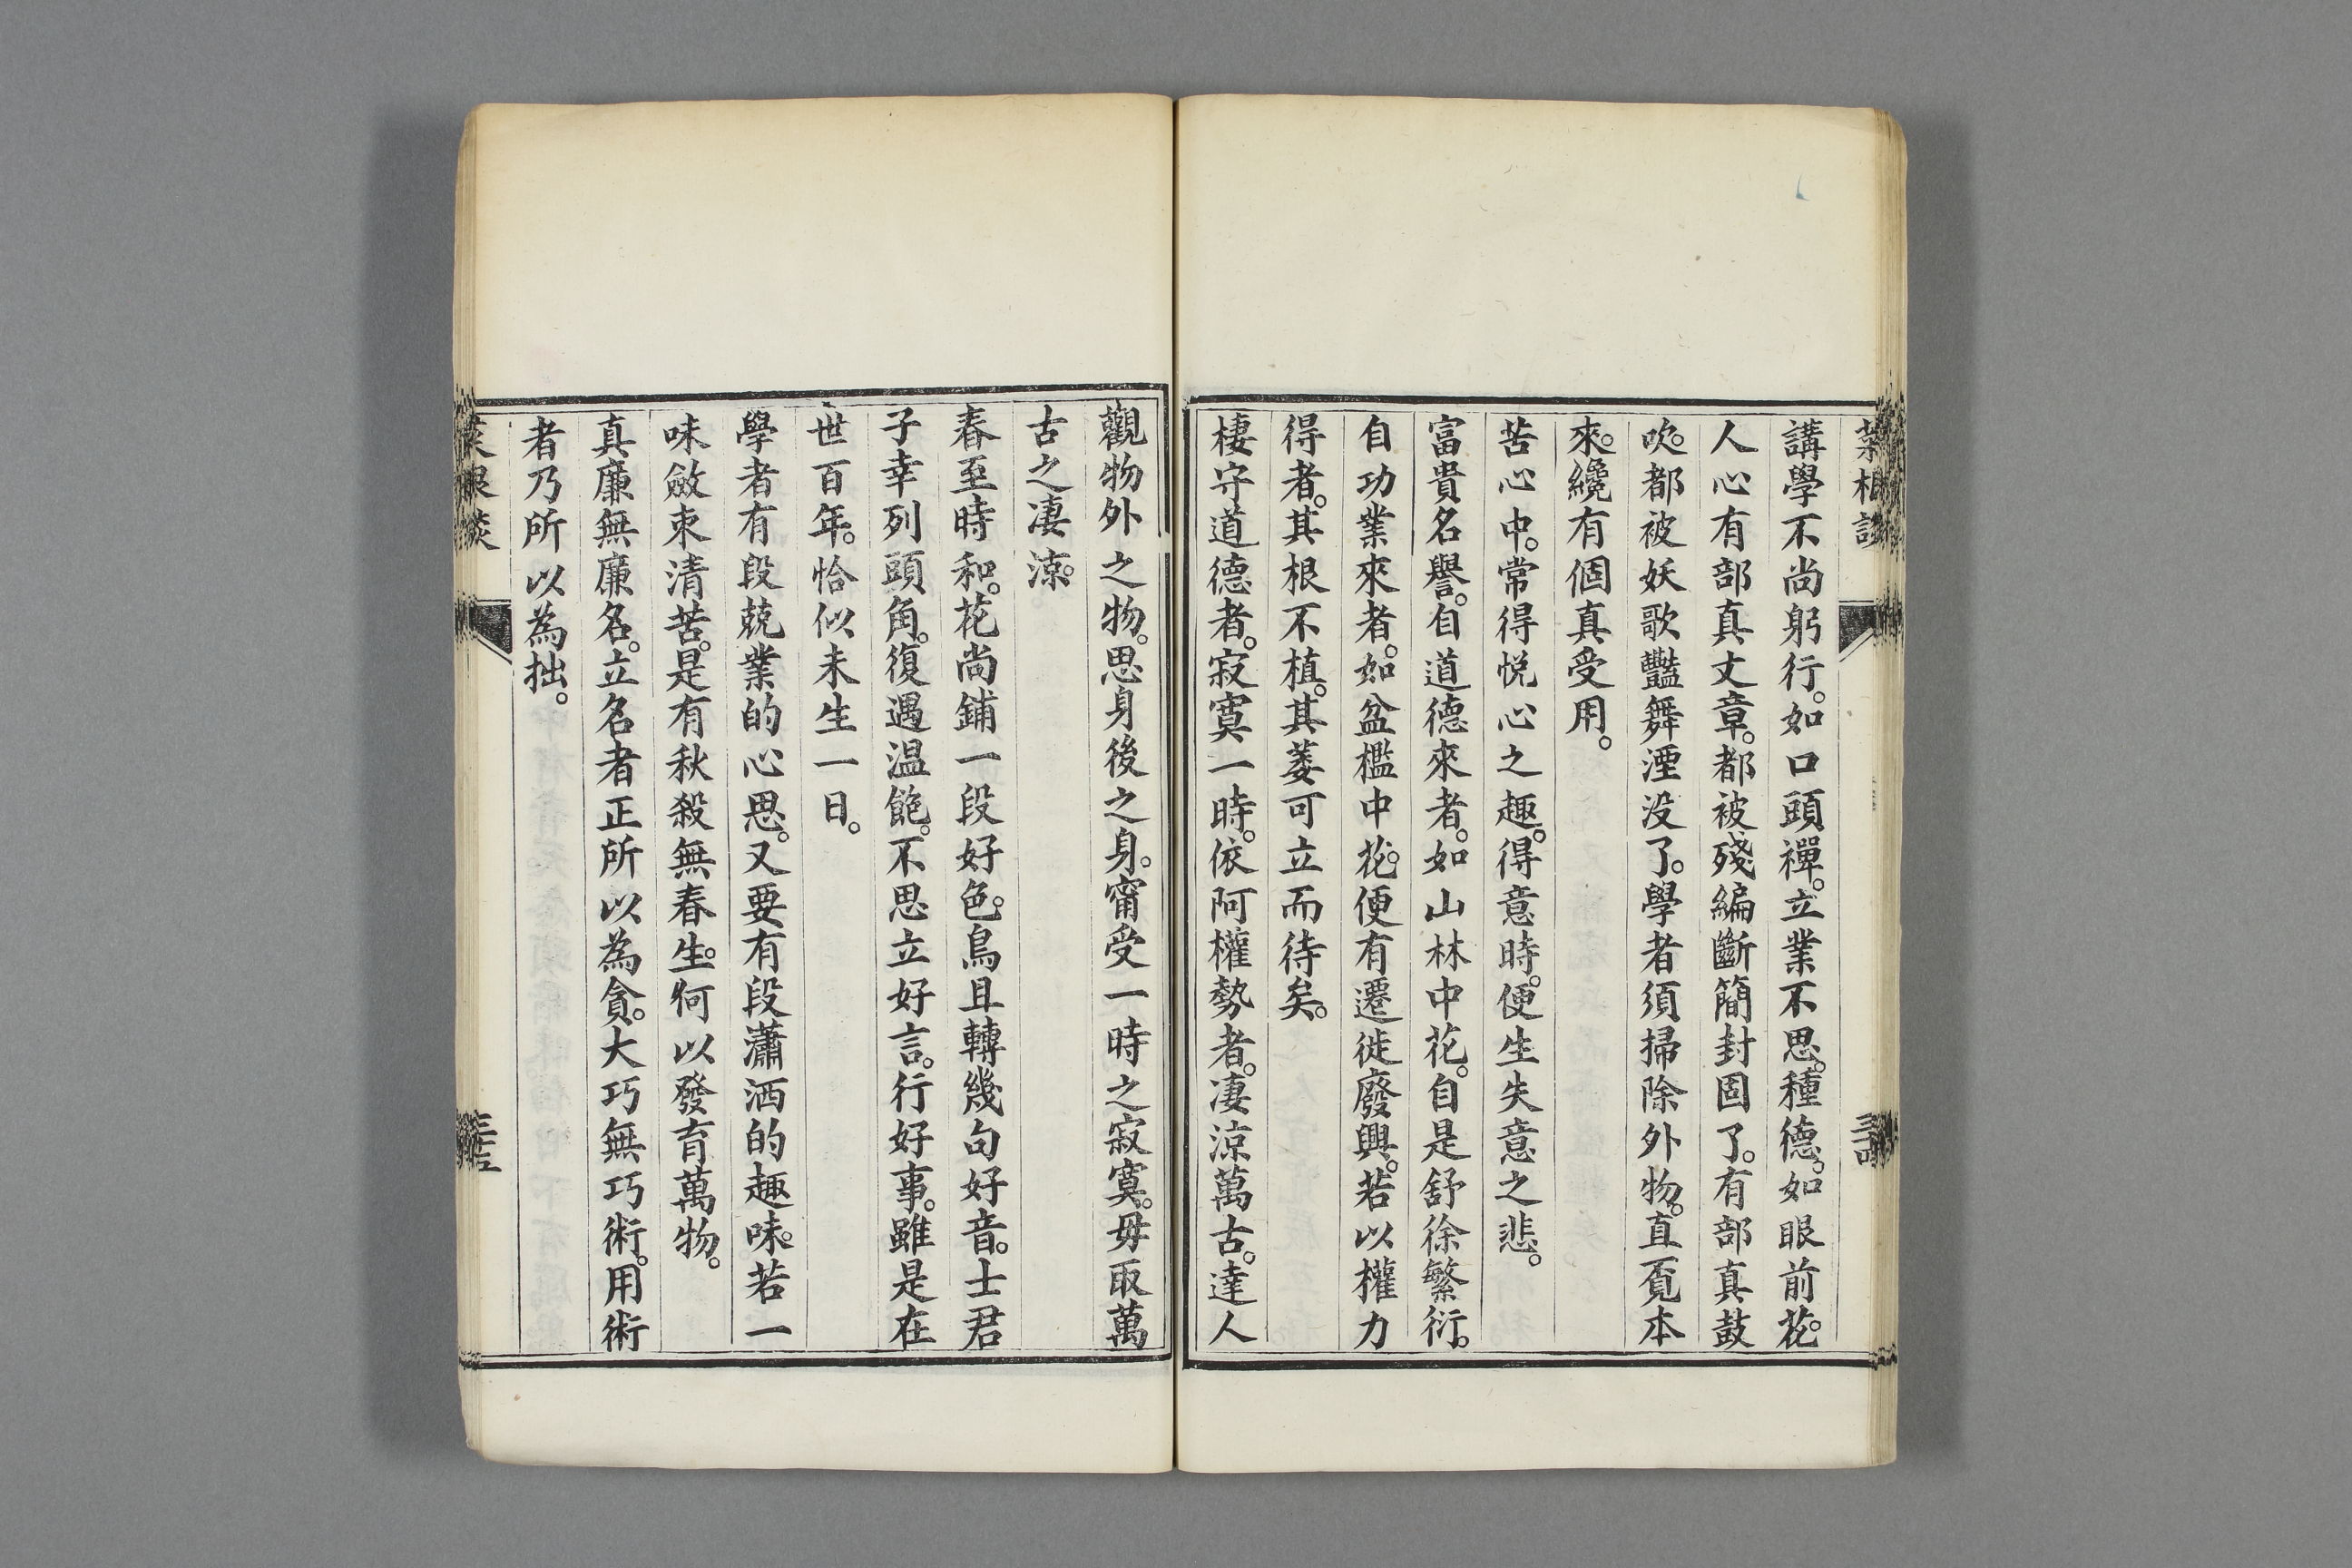 菜根談
講學不尚躬行。如口頭禪。立業不思。種德。如眼前花。
人心有部真文章。都被殘編斷簡封固了。有部真鼓
吹。都被妖歌豔舞湮没了。學者須掃除外物。直覓本
來。纔有個真受用。
苦心中。常得悦心之趣。得意時。便生失意之悲。
富貴名譽。自道德來者。如山林中花。自是舒徐繁衍。
自功業來者。如盆檻中花。便有遷徙廢興。若以權力
得者。其根不植。其萎可立而待矣。
棲守道德者。寂寞一時。依阿權勢者。凄涼萬古。達人
觀物外之物。思身後之身。甯受一時之寂寞。毋取萬
古之凄涼。
春至時和。花尚鋪一段好色。鳥且轉幾句好音。士君
子幸列頭角。復遇温飽。不思立好言。行好事。雖是在
世百年。恰似未生一日。
學者有段兢業的心思。又要有段瀟洒的趣味。若一
味斂束清苦。是有秋殺無春生。何以發育萬物。
真廉無廉名。立名者正所以為貪。大巧無巧術。用術
者乃所以為拙。
菜根談